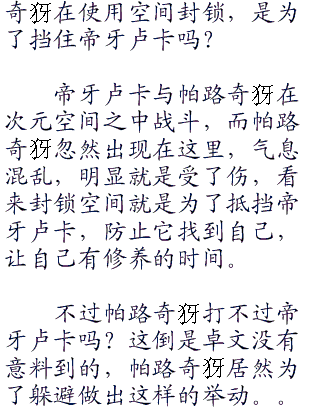 奇犽在使用空间封锁，是为
了挡住帝牙卢卡吗？
帝牙卢卡与帕路奇犽在
次元空间之中战斗，而帕路
奇犽忽然出现在这里，气息
混乱，明显就是受了伤，看
来封锁空间就是为了抵挡帝
牙卢卡，防止它找到自己，
让自己有修养的时间。
不过帕路奇犽打不过帝
牙卢卡吗？这倒是卓文没有
意料到的，帕路奇犽居然为
了躲避做出这样的举动。。